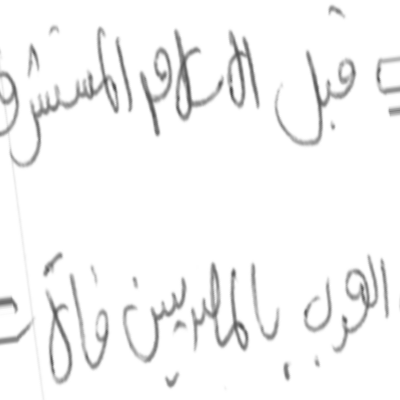 = قبل الاسلام المستشرق
العرب بالمصريين فالآ =